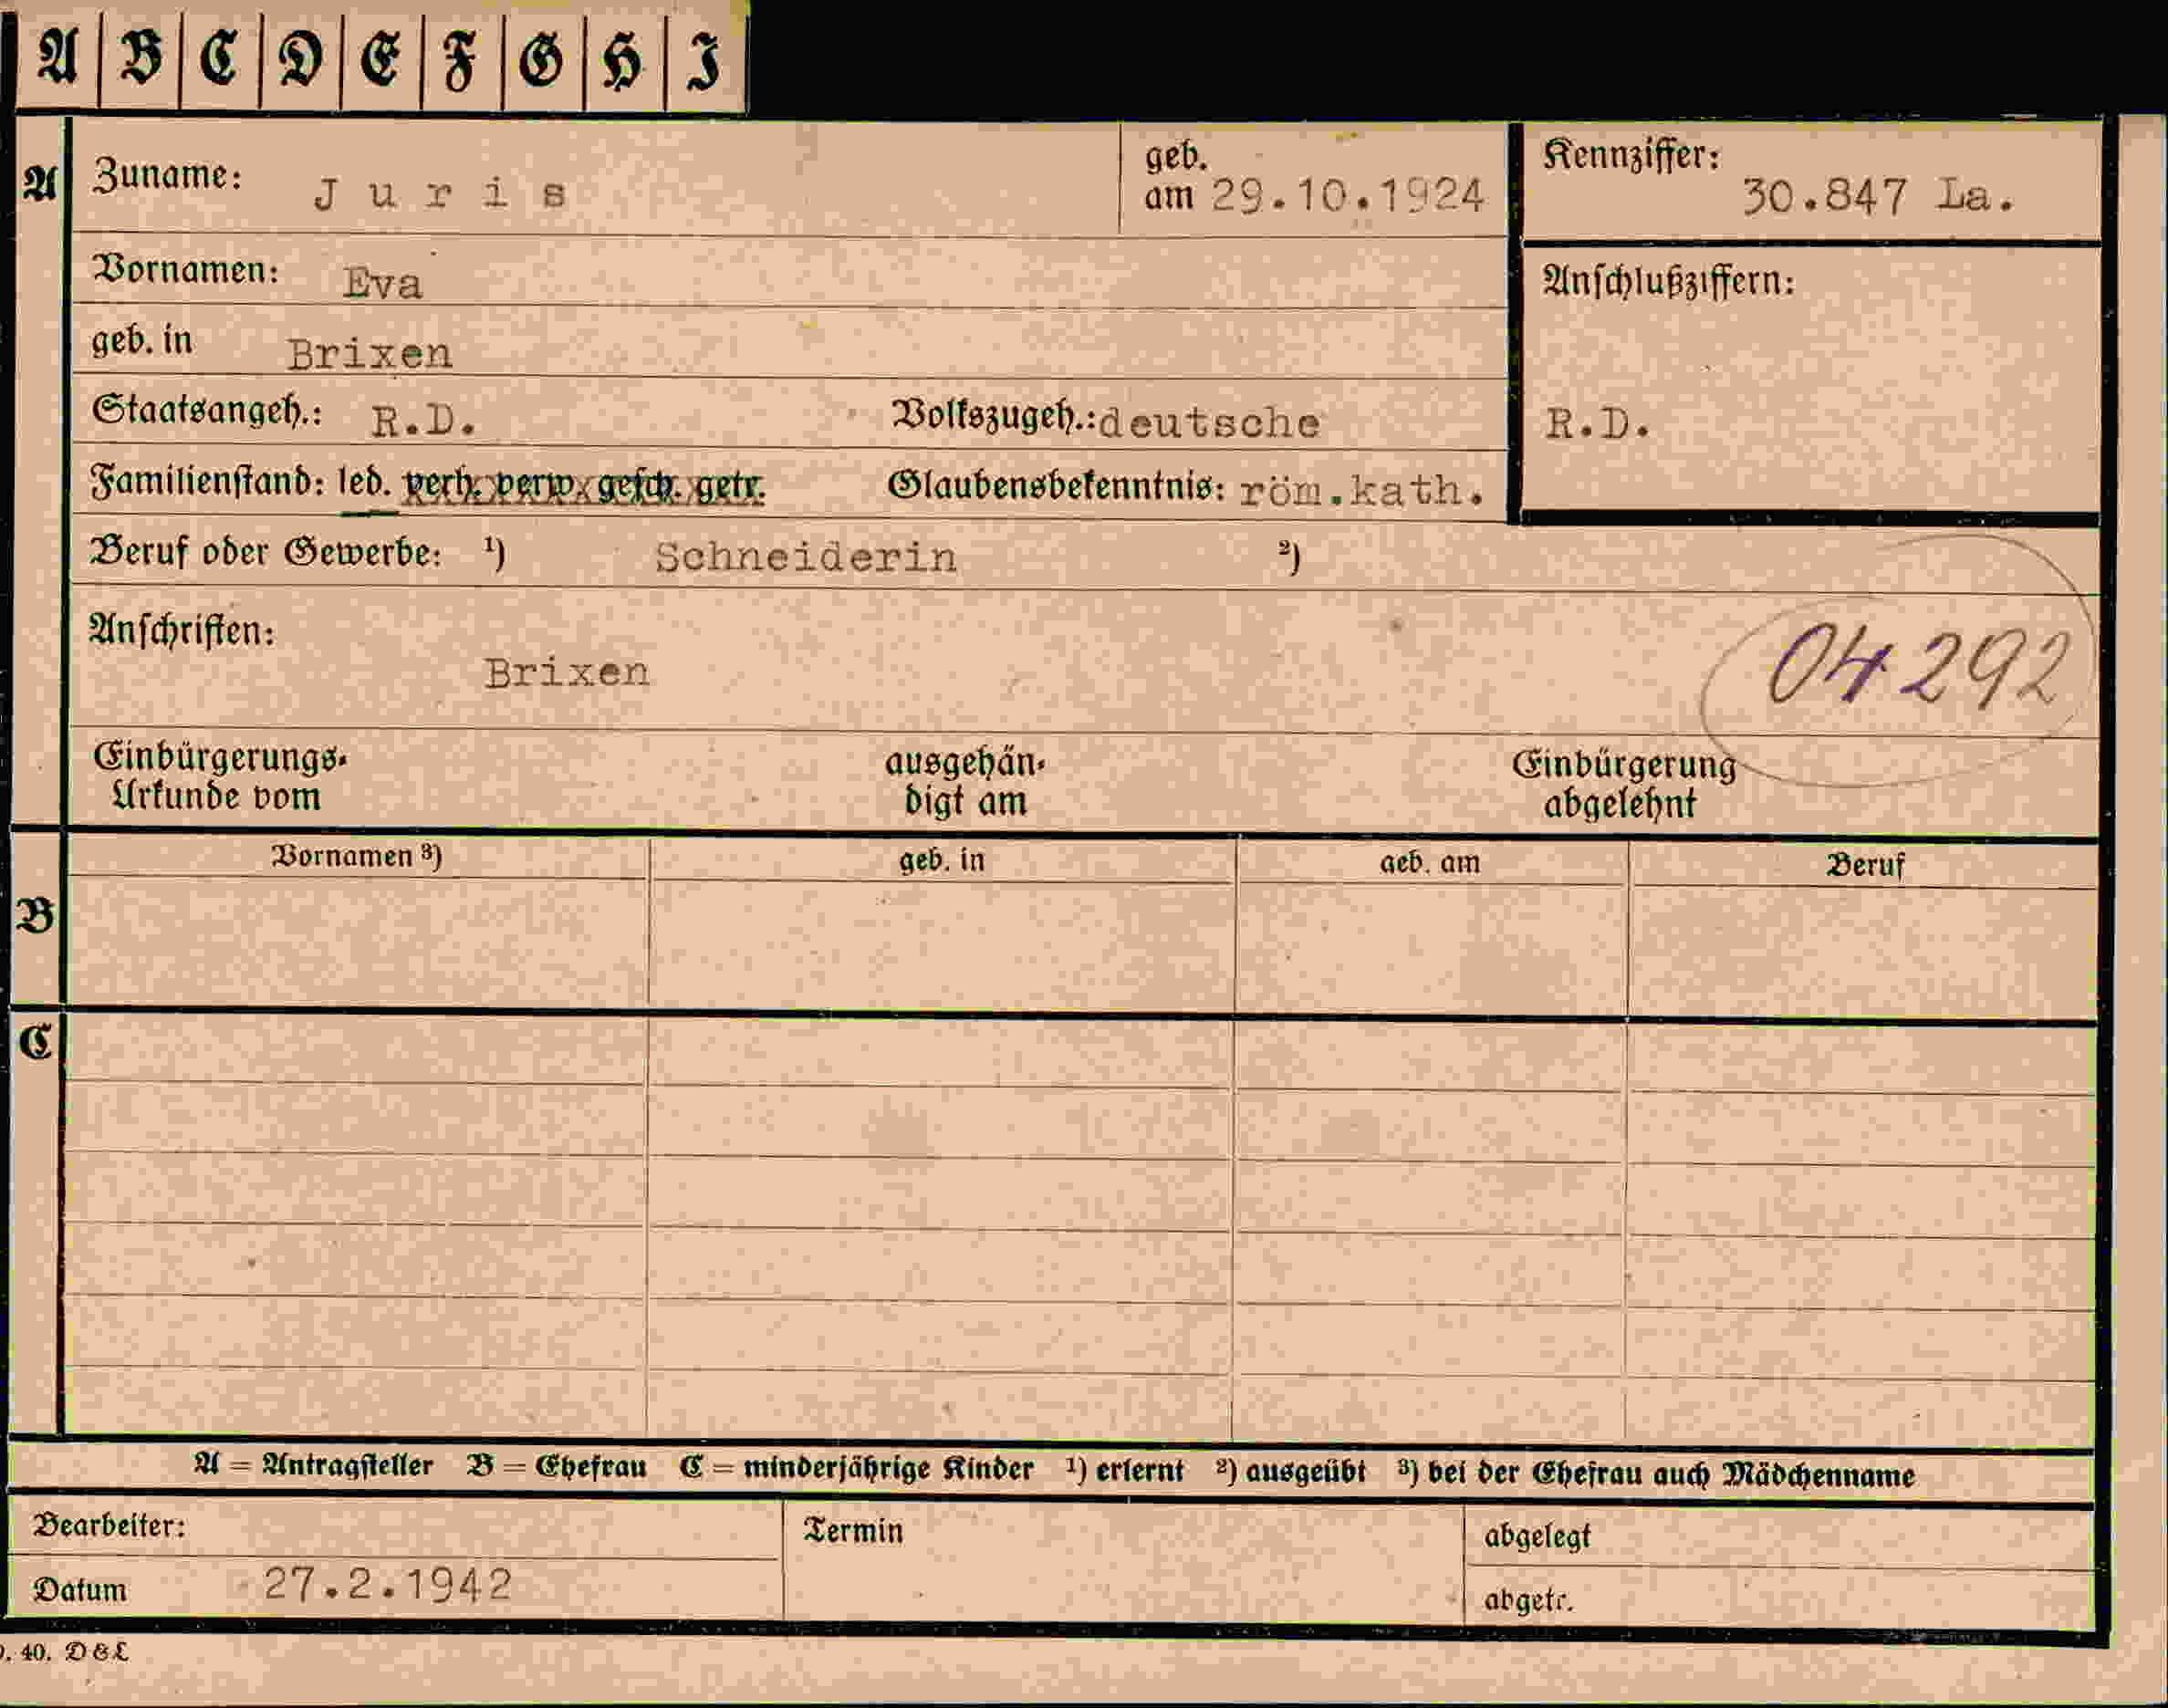 A B C D E F G H I
A Zuname: Juris geb. am 29.10.1924 Kennziffer: 30.847 La.
Vornamen: Eva Anschlußziffern:
geb. in Brixen
Staatsangeh.: R.D. Volkszugeh.: deutsche R.D.
Familienstand: led. verh. verw. gesch. getr. Glaubensbekenntnis: röm.kath.
Beruf oder Gewerbe: ¹) Schneiderin ²)
Anschriften:
Brixen 04292
Einbürgerungs- ausgehän- Einbürgerung
Urkunde vom digt am abgelehnt
Vornamen ³) geb. in geb. am Beruf
B
C
A = Antragsteller B = Ehefrau C = minderjährige Kinder ¹) erlernt ²) ausgeübt ³) bei der Ehefrau auch Mädchenname
Bearbeiter: Termin abgelegt
Datum 27.2.1942 abgetr.
. 40. D&L